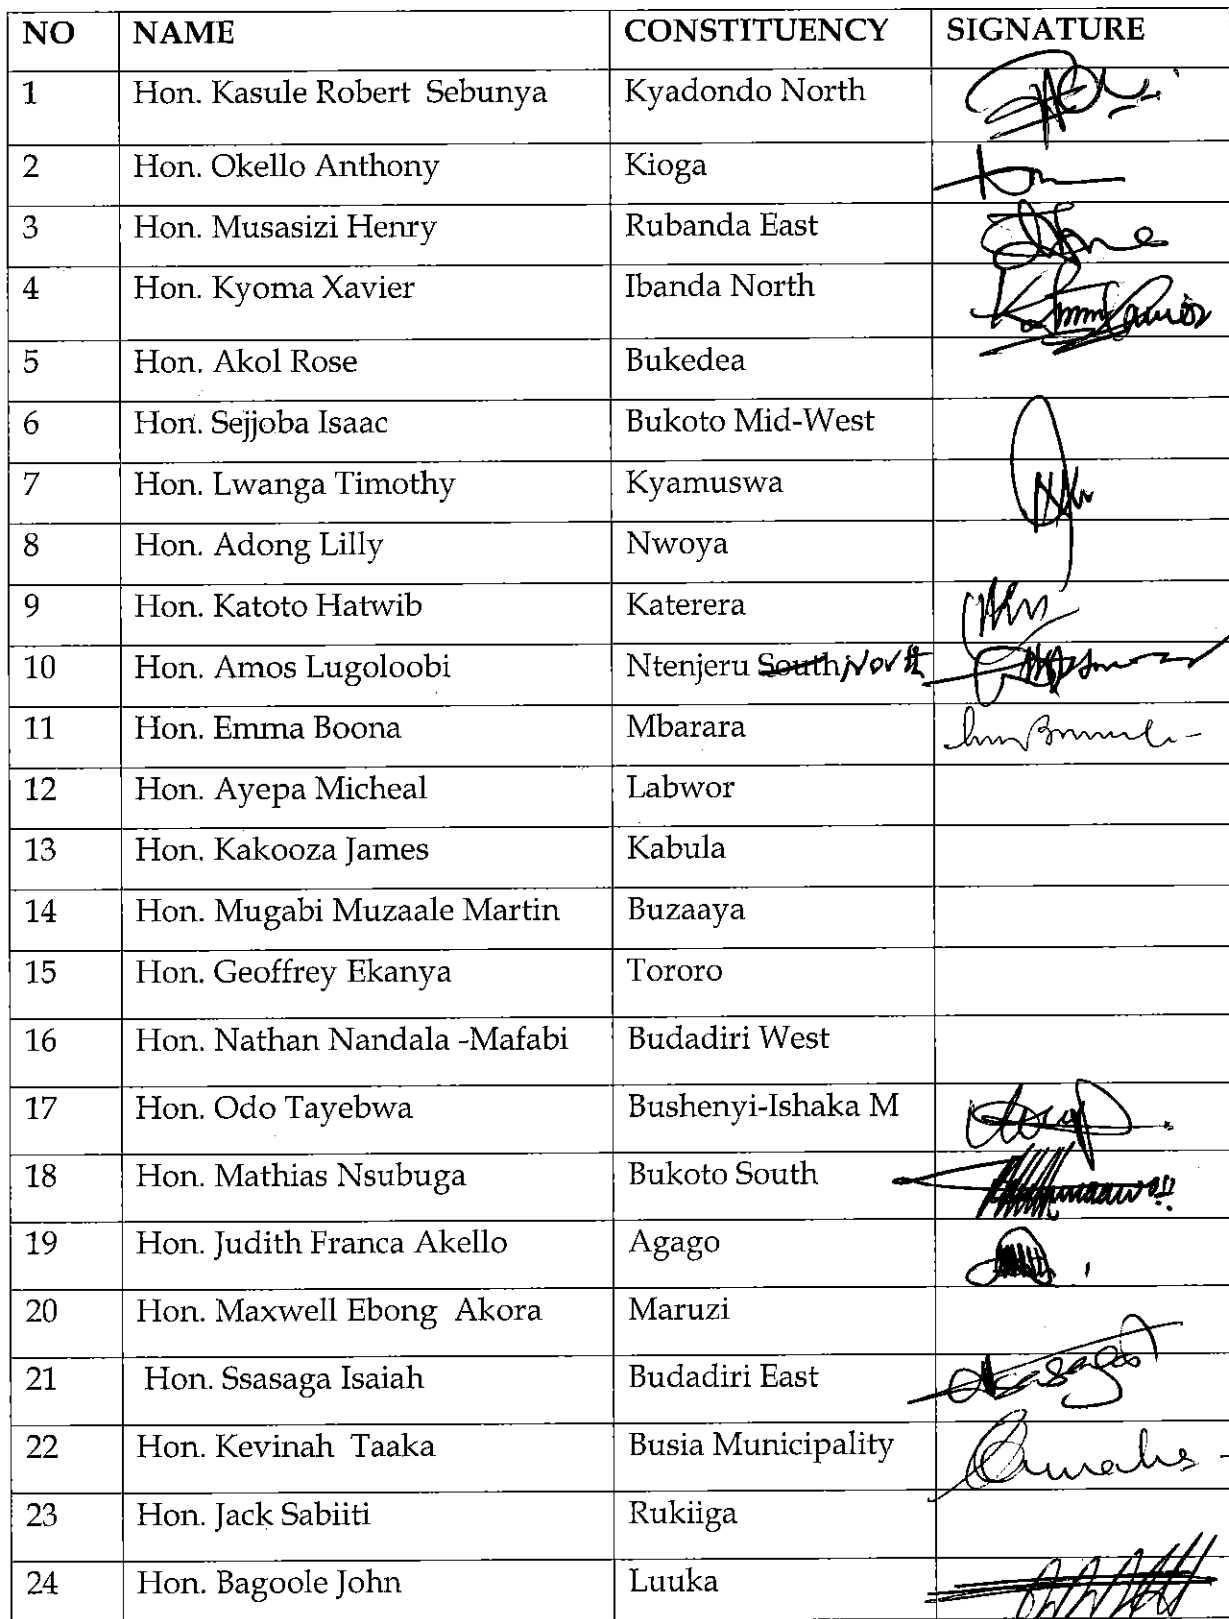 NO NAME CONSTITUENCY SIGNATURE
1 Hon. Kasule Robert Sebunya Kyadondo North
2 Hon. Okello Anthony Kioga
3 Hon. Musasizi Henry Rubanda East
4 Hon. Kyoma Xavier Ibanda North
5 Hon. Akol Rose Bukedea
6 Hon. Sejjoba Isaac Bukoto Mid-West
7 Hon. Lwanga Timothy Kyamuswa
8 Hon. Adong Lilly Nwoya
9 Hon. Katoto Hatwib Katerera
10 Hon. Amos Lugoloobi Ntenjeru South North
11 Hon. Emma Boona Mbarara
12 Hon. Ayepa Micheal Labwor
13 Hon. Kakooza James Kabula
14 Hon. Mugabi Muzaale Martin Buzaaya
15 Hon. Geoffrey Ekanya Tororo
16 Hon. Nathan Nandala -Mafabi Budadiri West
17 Hon. Odo Tayebwa Bushenyi-Ishaka M
18 Hon. Mathias Nsubuga Bukoto South
19 Hon. Judith Franca Akello Agago
20 Hon. Maxwell Ebong Akora Maruzi
21 Hon. Ssasaga Isaiah Budadiri East
22 Hon. Kevinah Taaka Busia Municipality
23 Hon. Jack Sabiiti Rukiiga
24 Hon. Bagoole John Luuka